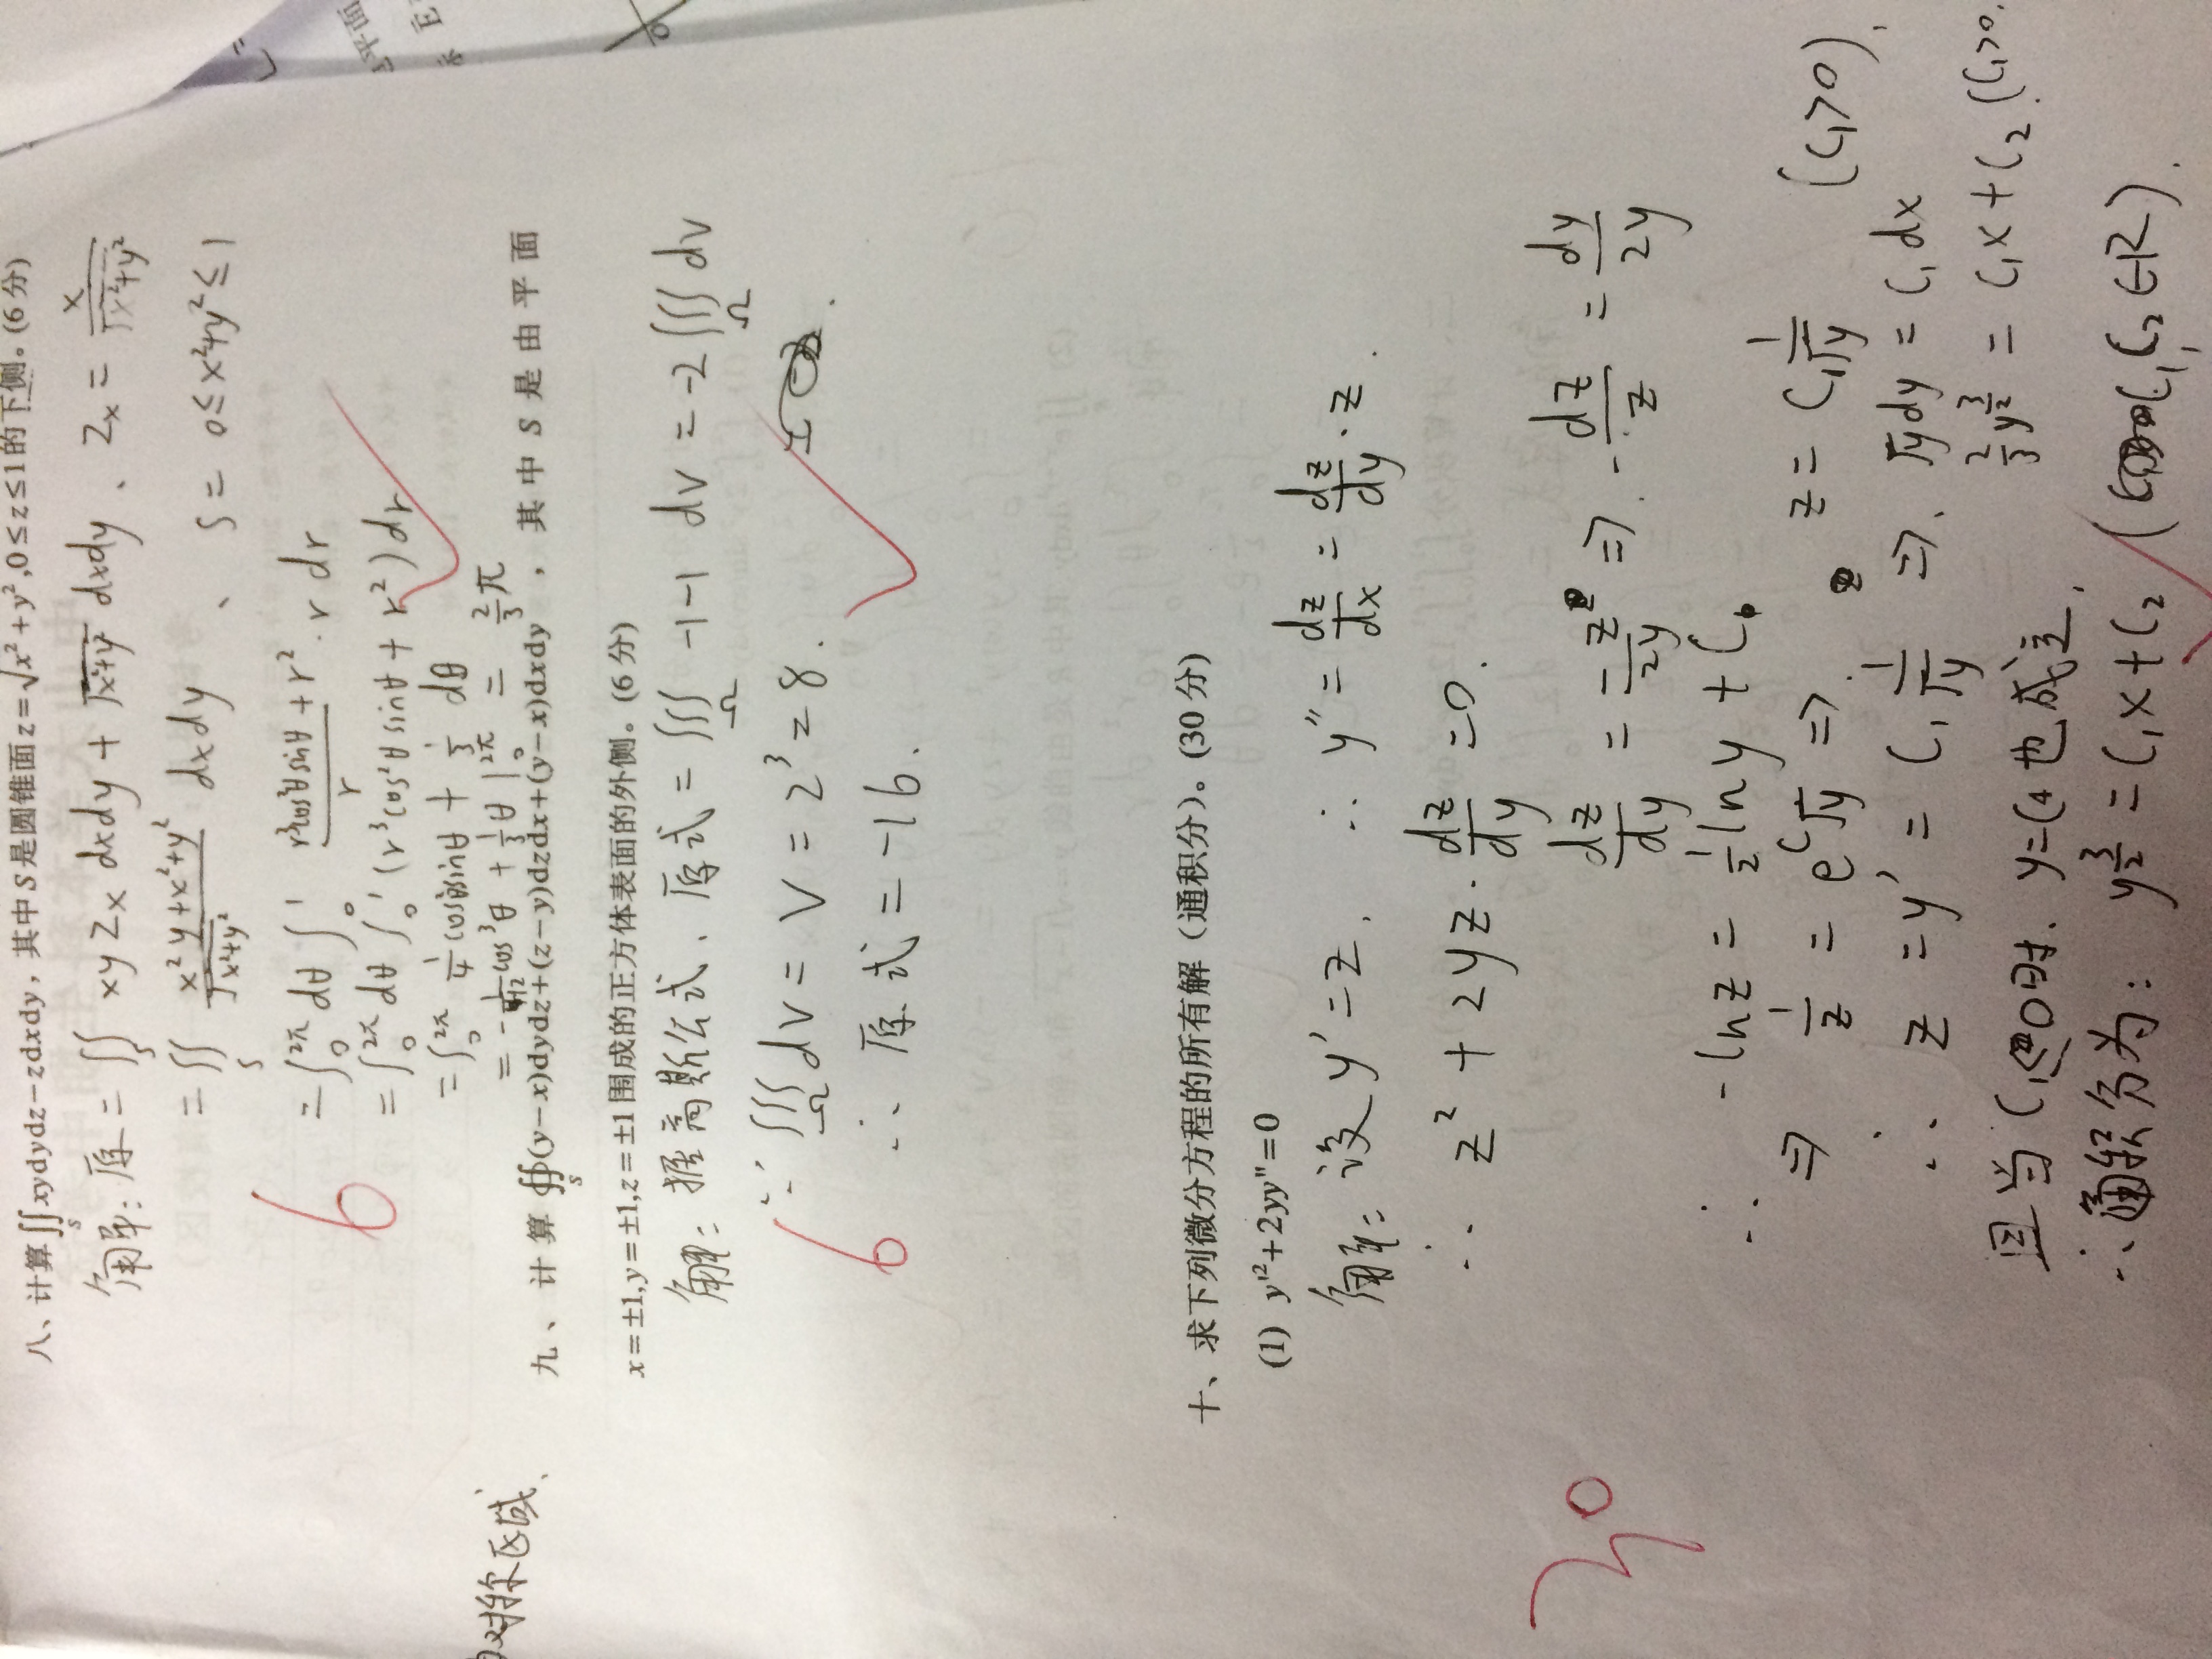 八、计算∬_S xydydz−zdxdy，其中S是圆锥面z=√(x²+y²),0≤z≤1的下侧。(6分)
解：原 = ∬_S xy Zx dxdy + √(x²+y²) dxdy 、 Zx = x/√(x²+y²)
= ∬_S (x²y+x²+y²)/√(x²+y²) dxdy 、 S = 0≤x²+y²≤1
= ∫₀^2π dθ ∫₀^1 (r³cos²θsinθ + r²)/r · r dr
6
= ∫₀^2π dθ ∫₀^1 (r³cos²θsinθ + r²) dr
= ∫₀^2π 1/4 cos²θsinθ + 1/3 dθ
= −1/12 cos³θ + 1/3 θ |₀^2π = 2/3 π
对称区域、
九、计算∯_S (y−x)dydz+(z−y)dzdx+(y−x)dxdy，其中S是由平面
x=±1,y=±1,z=±1围成的正方体表面的外侧。(6分)
解：据高斯公式、原式 = ∭_Ω −1−1 dV = −2∭_Ω dV
∵ ∭_Ω dV = V = 2³ = 8.
6
∴ 原式 = −16.
十、求下列微分方程的所有解（通积分）。(30分)
(1) y'²+2yy"=0
解：设 y' = z. ∴ y″ = dz/dx = dz/dy · z.
∴ z² + 2yz · dz/dy = 0.
30
dz/dy = −z/2y ⇒. −dz/z = dy/2y
∴ −lnz = 1/2 lny + C.
⇒ 1/z = e^C √y ⇒. z = C₁ 1/√y (C₁>0),
∴ z = y' = C₁ 1/√y ⇒. √y dy = C₁dx
2/3 y^(3/2) = C₁x + C₂ (C₁>0.
且当 C₁≤0时. y=C4 也成立,
∴通积分为： y^(3/2) = C₁x + C₂ (C₁, C₂ ∈R).